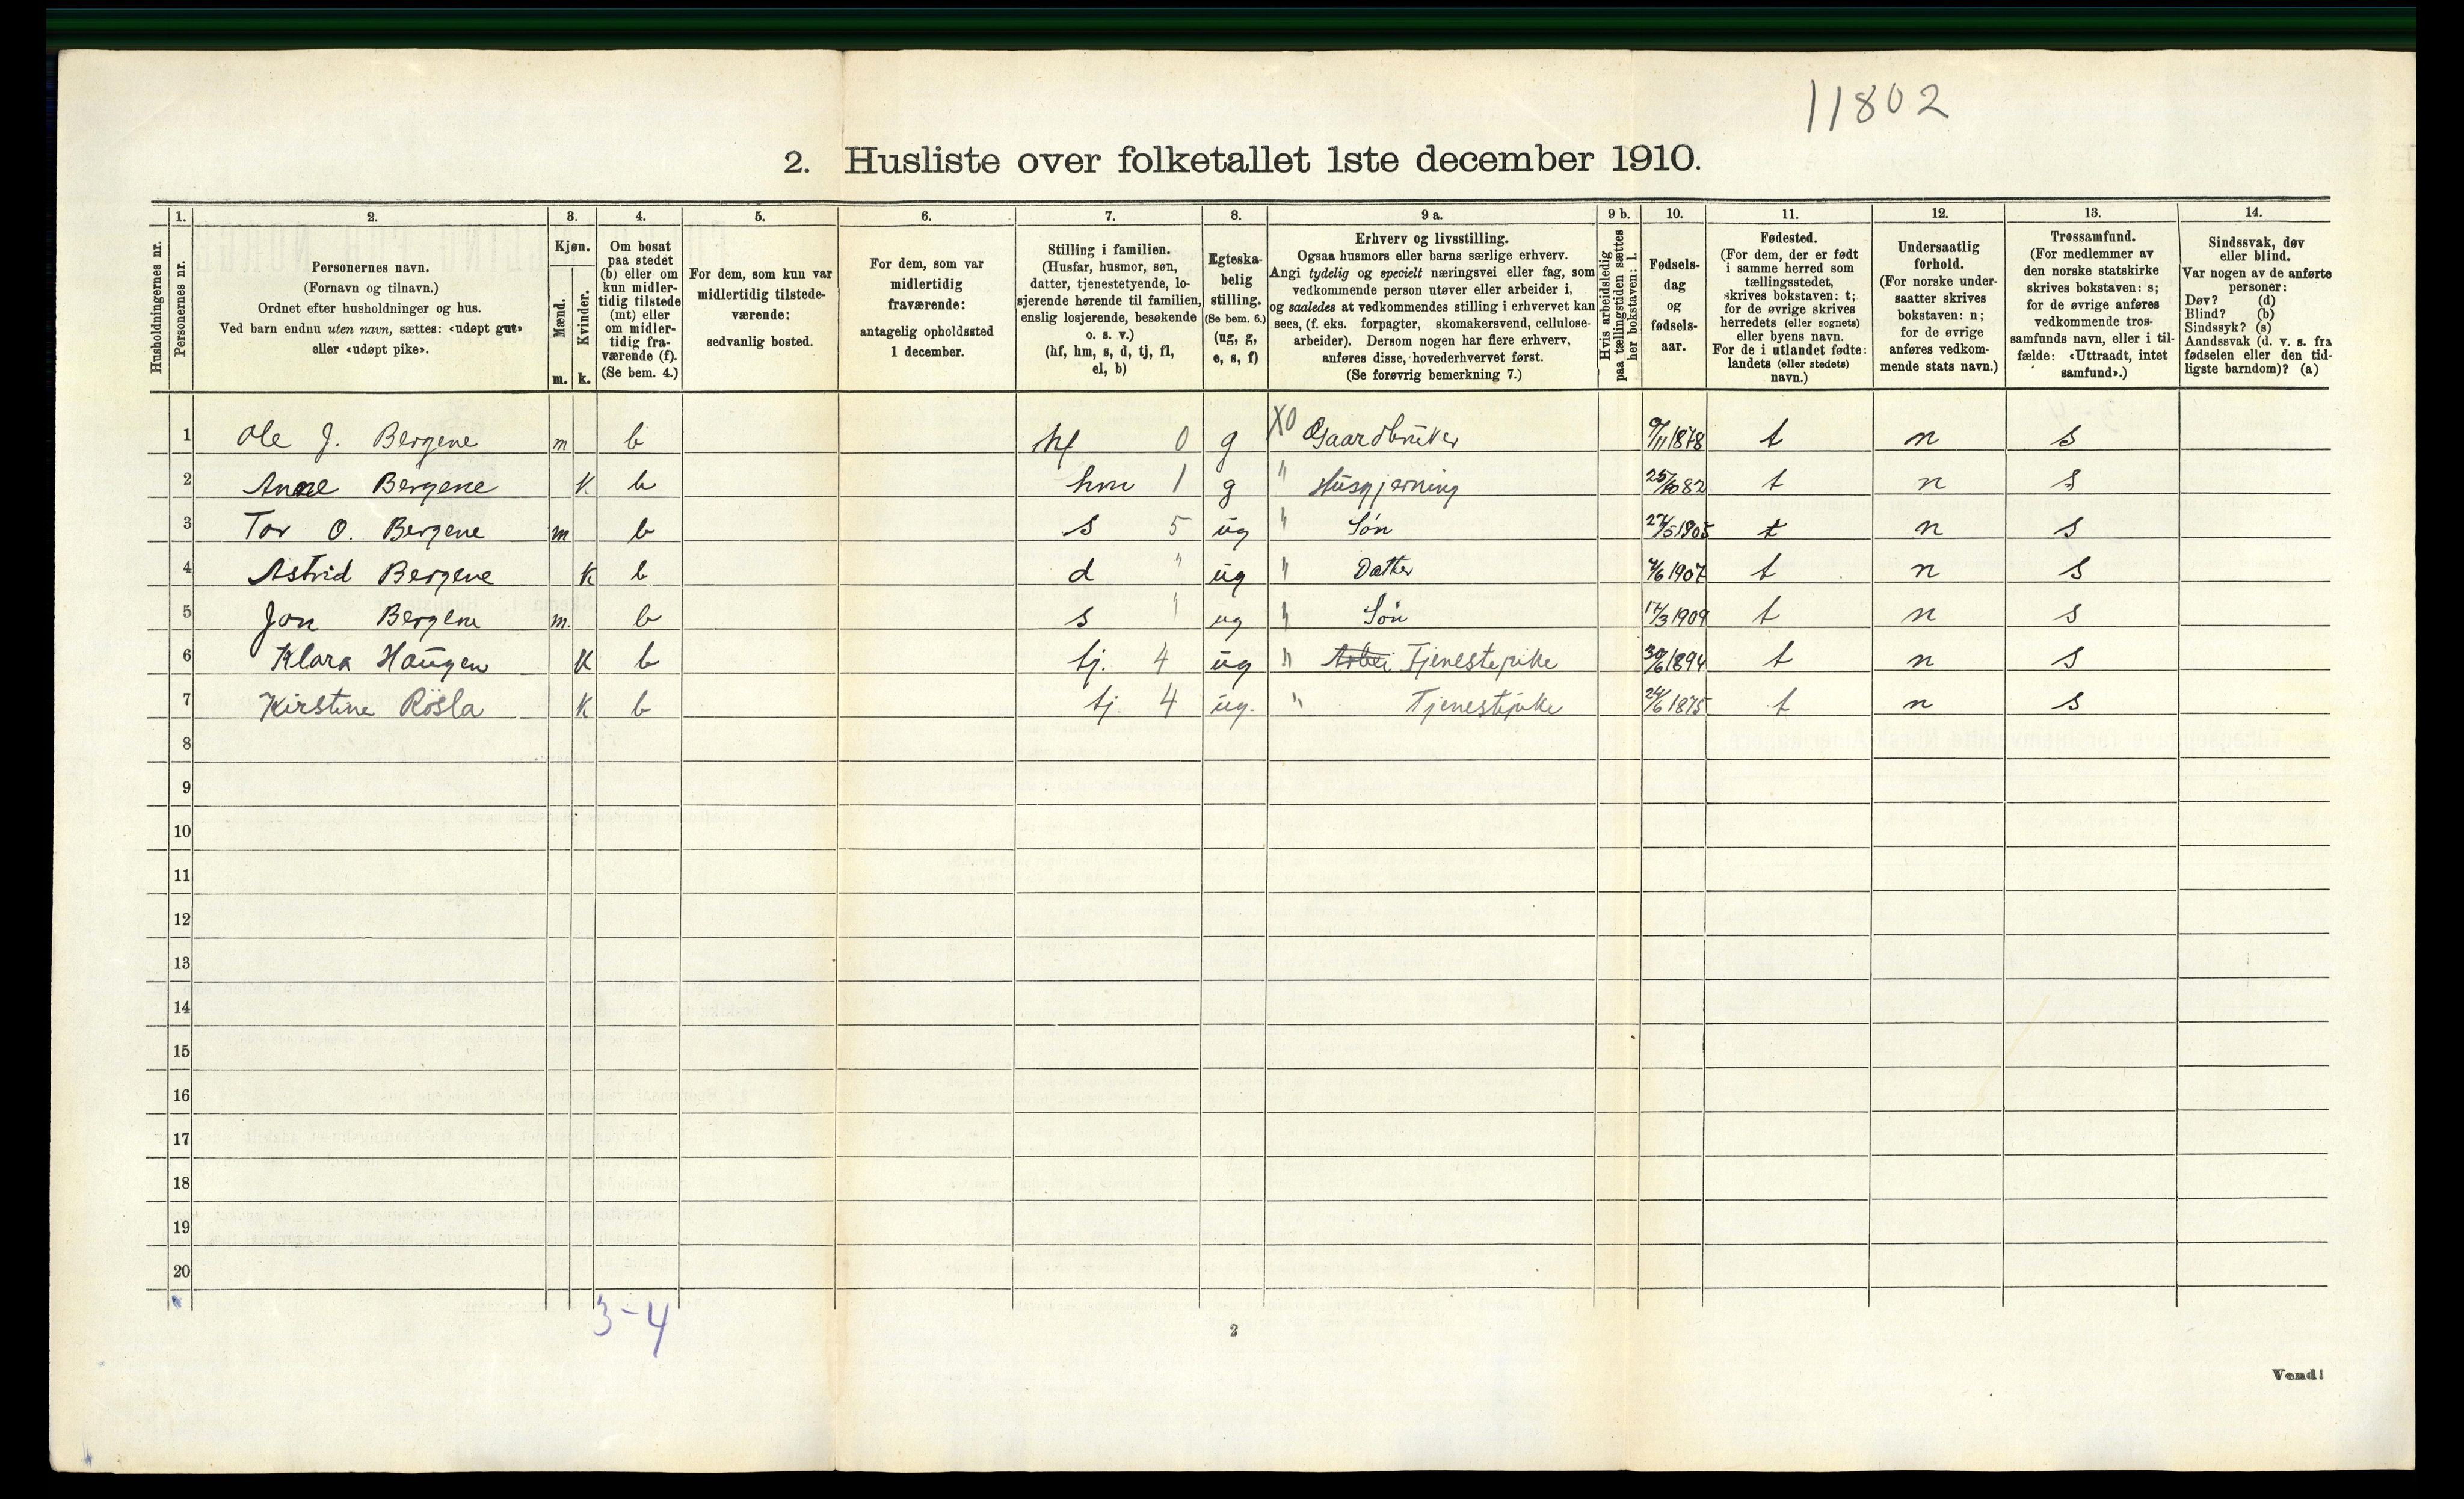 11802
2. Husliste over folketallet 1ste december 1910.
Husholdningernes nr.
1. Personernes nr.
2. Personernes navn. (Fornavn og tilnavn.) Ordnet efter husholdninger og hus. Ved barn endnu uten navn, sættes: «udøpt gut» eller «udøpt pike».
3. Kjøn. Mænd. m. Kvinder. k.
4. Om bosat paa stedet (b) eller om kun midlertidig tilstede (mt) eller om midlertidig fraværende (f). (Se bem. 4.)
5. For dem, som kun var midlertidig tilstedeværende: sedvanlig bosted.
6. For dem, som var midlertidig fraværende: antagelig opholdssted 1 december.
7. Stilling i familien. (Husfar, husmor, søn, datter, tjenestetyende, losjerende hørende til familien, enslig losjerende, besøkende o. s. v.) (hf, hm, s, d, tj, fl, el, b)
8. Egteskabelig stilling. (Se bem. 6.) (ug, g, e, s, f)
9 a. Erhverv og livsstilling. Ogsaa husmors eller barns særlige erhverv. Angi tydelig og specielt næringsvei eller fag, som vedkommende person utøver eller arbeider i, og saaledes at vedkommendes stilling i erhvervet kan sees, (f. eks. forpagter, skomakersvend, cellulosearbeider). Dersom nogen har flere erhverv, anføres disse, hovederhvervet først. (Se forøvrig bemerkning 7.)
9 b. Hvis arbeidsledig paa tællingstiden sættes her bokstaven: l.
10. Fødselsdag og fødselsaar.
11. Fødested. (For dem, der er født i samme herred som tællingsstedet, skrives bokstaven: t; for de øvrige skrives herredets (eller sognets) eller byens navn. For de i utlandet fødte: landets (eller stedets) navn.)
12. Undersaatlig forhold. (For norske undersaatter skrives bokstaven: n; for de øvrige anføres vedkommende stats navn.)
13. Trossamfund. (For medlemmer av den norske statskirke skrives bokstaven: s; for de øvrige anføres vedkommende trossamfunds navn, eller i tilfælde: «Uttraadt, intet samfund».)
14. Sindssvak, døv eller blind. Var nogen av de anførte personer: Døv? (d) Blind? (b) Sindssyk? (s) Aandssvak (d. v. s. fra fødselen eller den tidligste barndom)? (a)
1 Ole J. Bergene m b hf 0 g X0 Gaardbruker 9/11 1878 t n s
2 Anne Bergene K b hm 1 g " Husgjerning 25/10 82 t n s
3 Tor O. Bergene m b s 5 ug " Søn 27/5 1905 t n s
4 Astrid Bergene K b d " ug " Datter /6 1907 t n s
5 Jon Bergene m. b s " ug " Søn 17/3 1909 t n s
6 Klara Haugen K b tj. 4 ug " Arbei Tjenestepike 30/6 1894 t n s
7 Kirstine Rösla K b tj. 4 ug. " Tjenestepike 24/6 1875 t n s
8
9
10
11
12
13
14
15
16
17
18
19
20
3-4
2
Vend!